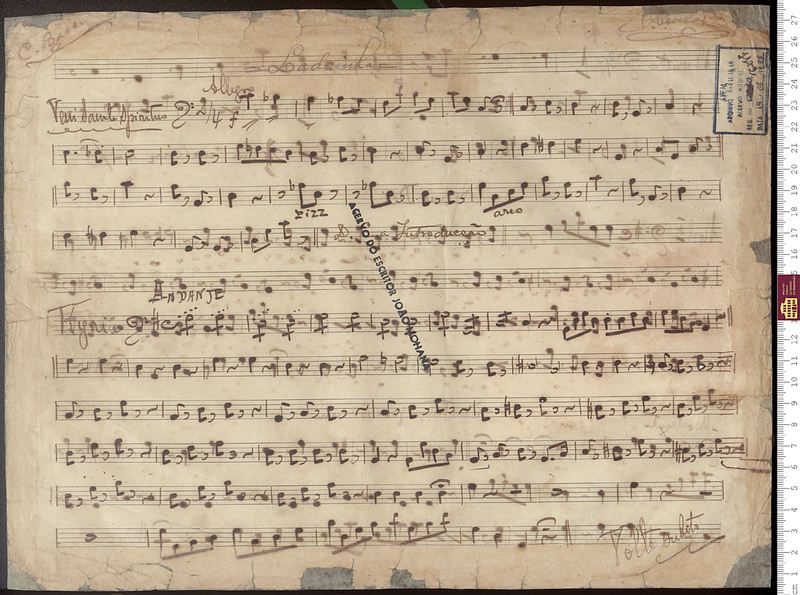 C. Basso
Ladainha
Allegro
Veni Sancte Spiritus
2/4 f
Pizz
arco
D. a Introducção
ACERVO DO ESCRITOR JOÃO MOHANA
ANDANTE
Kyrie
Volte subito
APEM
DATA
cm 1 2 3 4 5 6 7 8 9 10 11 12 13 14 15 16 17 18 19 20 21 22 23 24 25 26 27